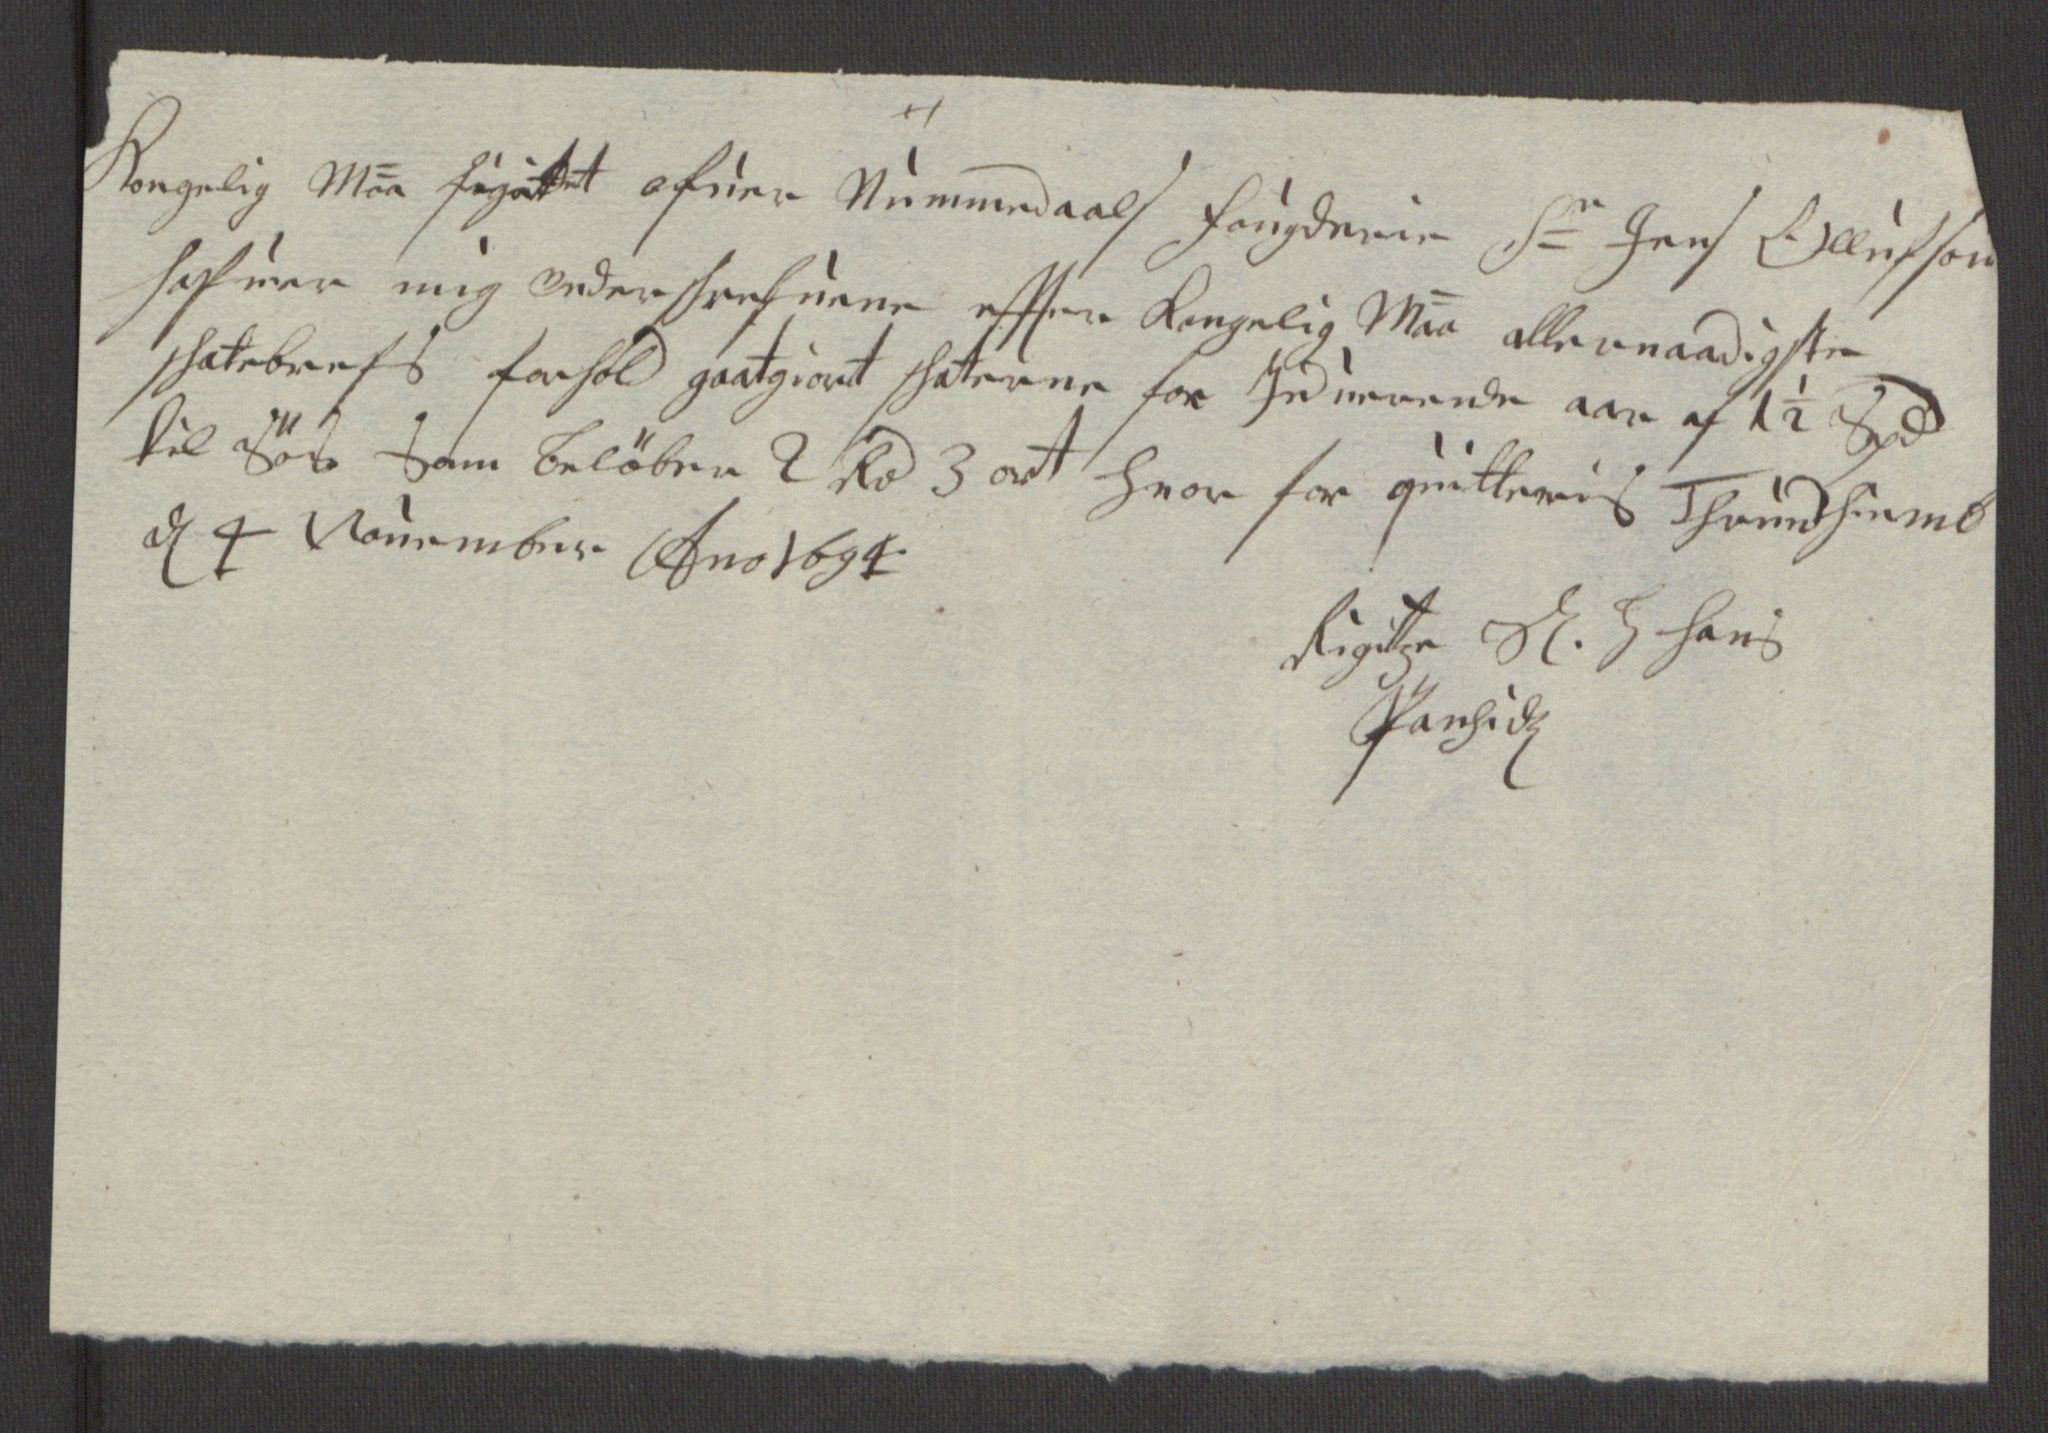 Kongelig Maa fugattet ofuer Nummedaals fougderie Sr Jens Ollufsøn
hafuer mig Underskrefuene effter Kongelig Maa allernaadigste
skatebrefs forhold gaatgiort skaterne for Induerende aar af 1½ Spd
til Söes Som belöber 2 Rd 3 ort Huor for quitteris Thrundhiemb
d 4 Nouember Ano 1694
Rigitze Sl. H Hans